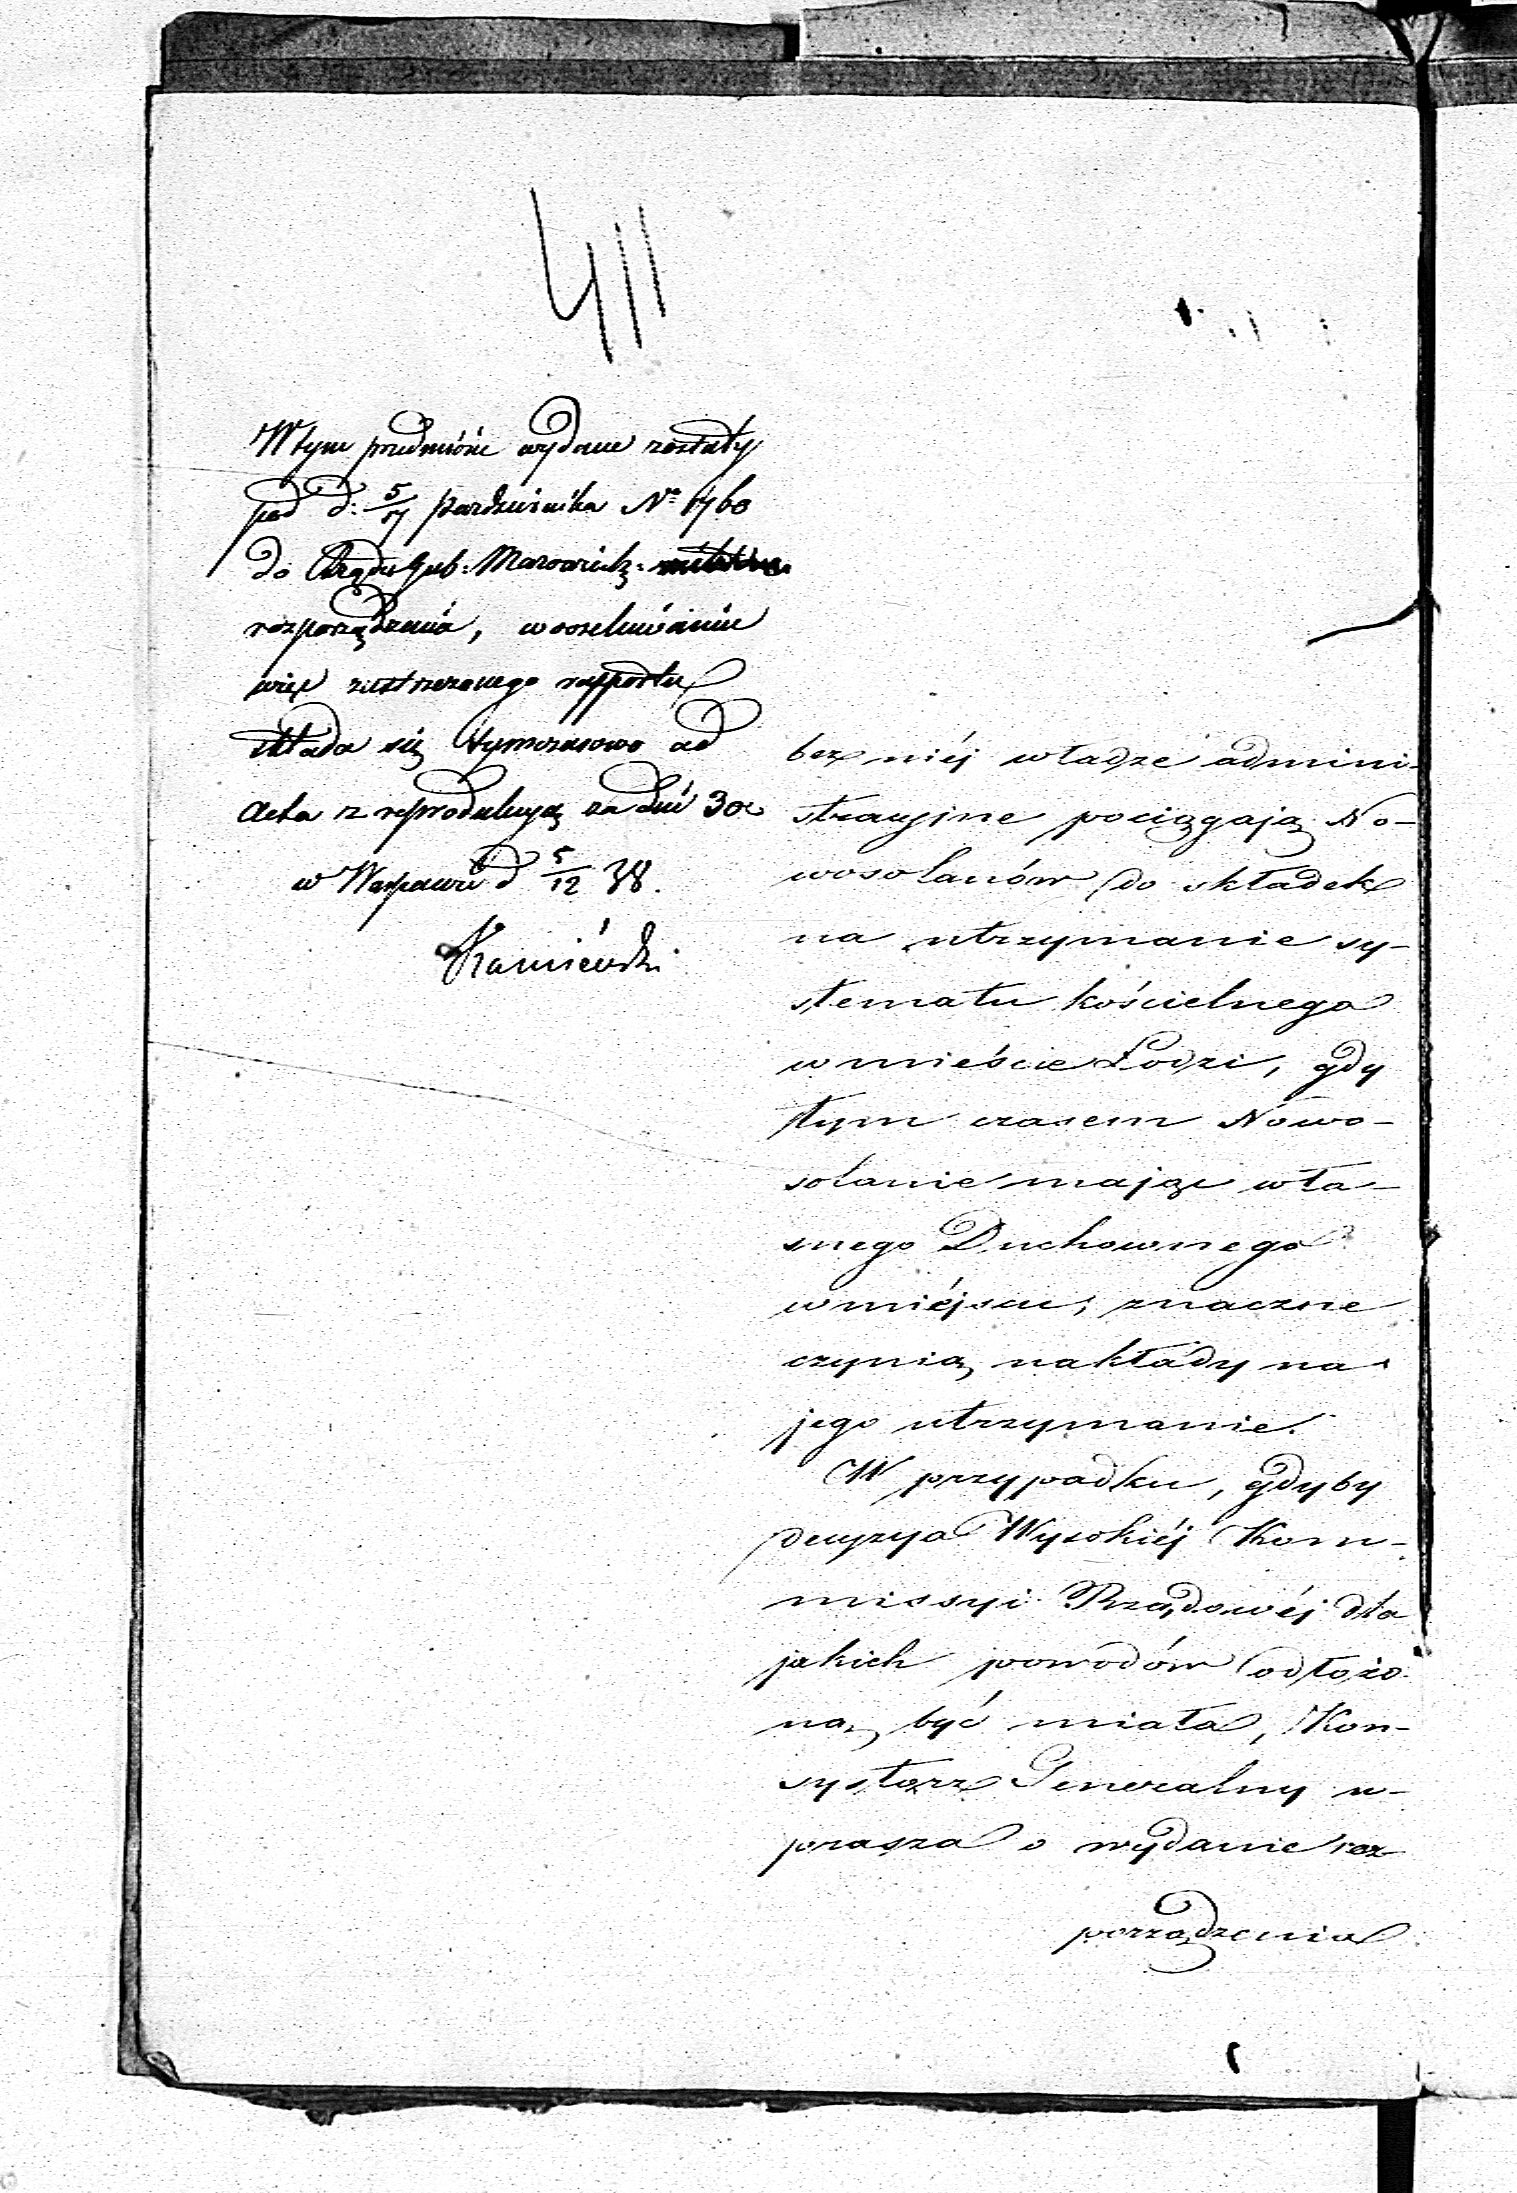 411
W tym przedmiocie wydane zostały
pod d: 5/17 Pazdziernika Nº 1760
do Rządu Gub: Mazowieck:
rozporządzenia, w oczekiwaniu
więc zastrzeżonego rapportu
składa się tymczasowo ad
acta z reprodukcyą za dni 30
w Warszawie d 5/12 38.
Kamieński
bez niéj władze admini-
stracyjne pociągają No-
wosolanów do składek
na utrzymanie sy-
stematu kościelnego
w mieście Łodzi, gdy
tym czasem Nowo-
solanie mając wła-
snego Duchownego
w miéjscu, znaczne
czynią nakłady na
jego utrzymanie.
W przypadku, gdyby
decyzya Wysokiéj Kom-
missyi Rządowéj dla
jakich powodów odłożo-
ną być miała, Kon-
systorz Generalny u-
prasza o wydanie roz-
porządzenia